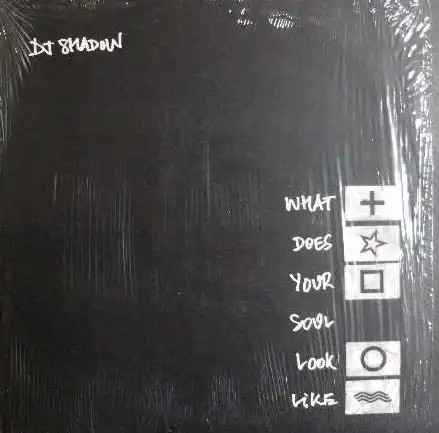 DJ SHADOW
WHAT
DOES
YOUR
SOUL
LOOK
LIKE